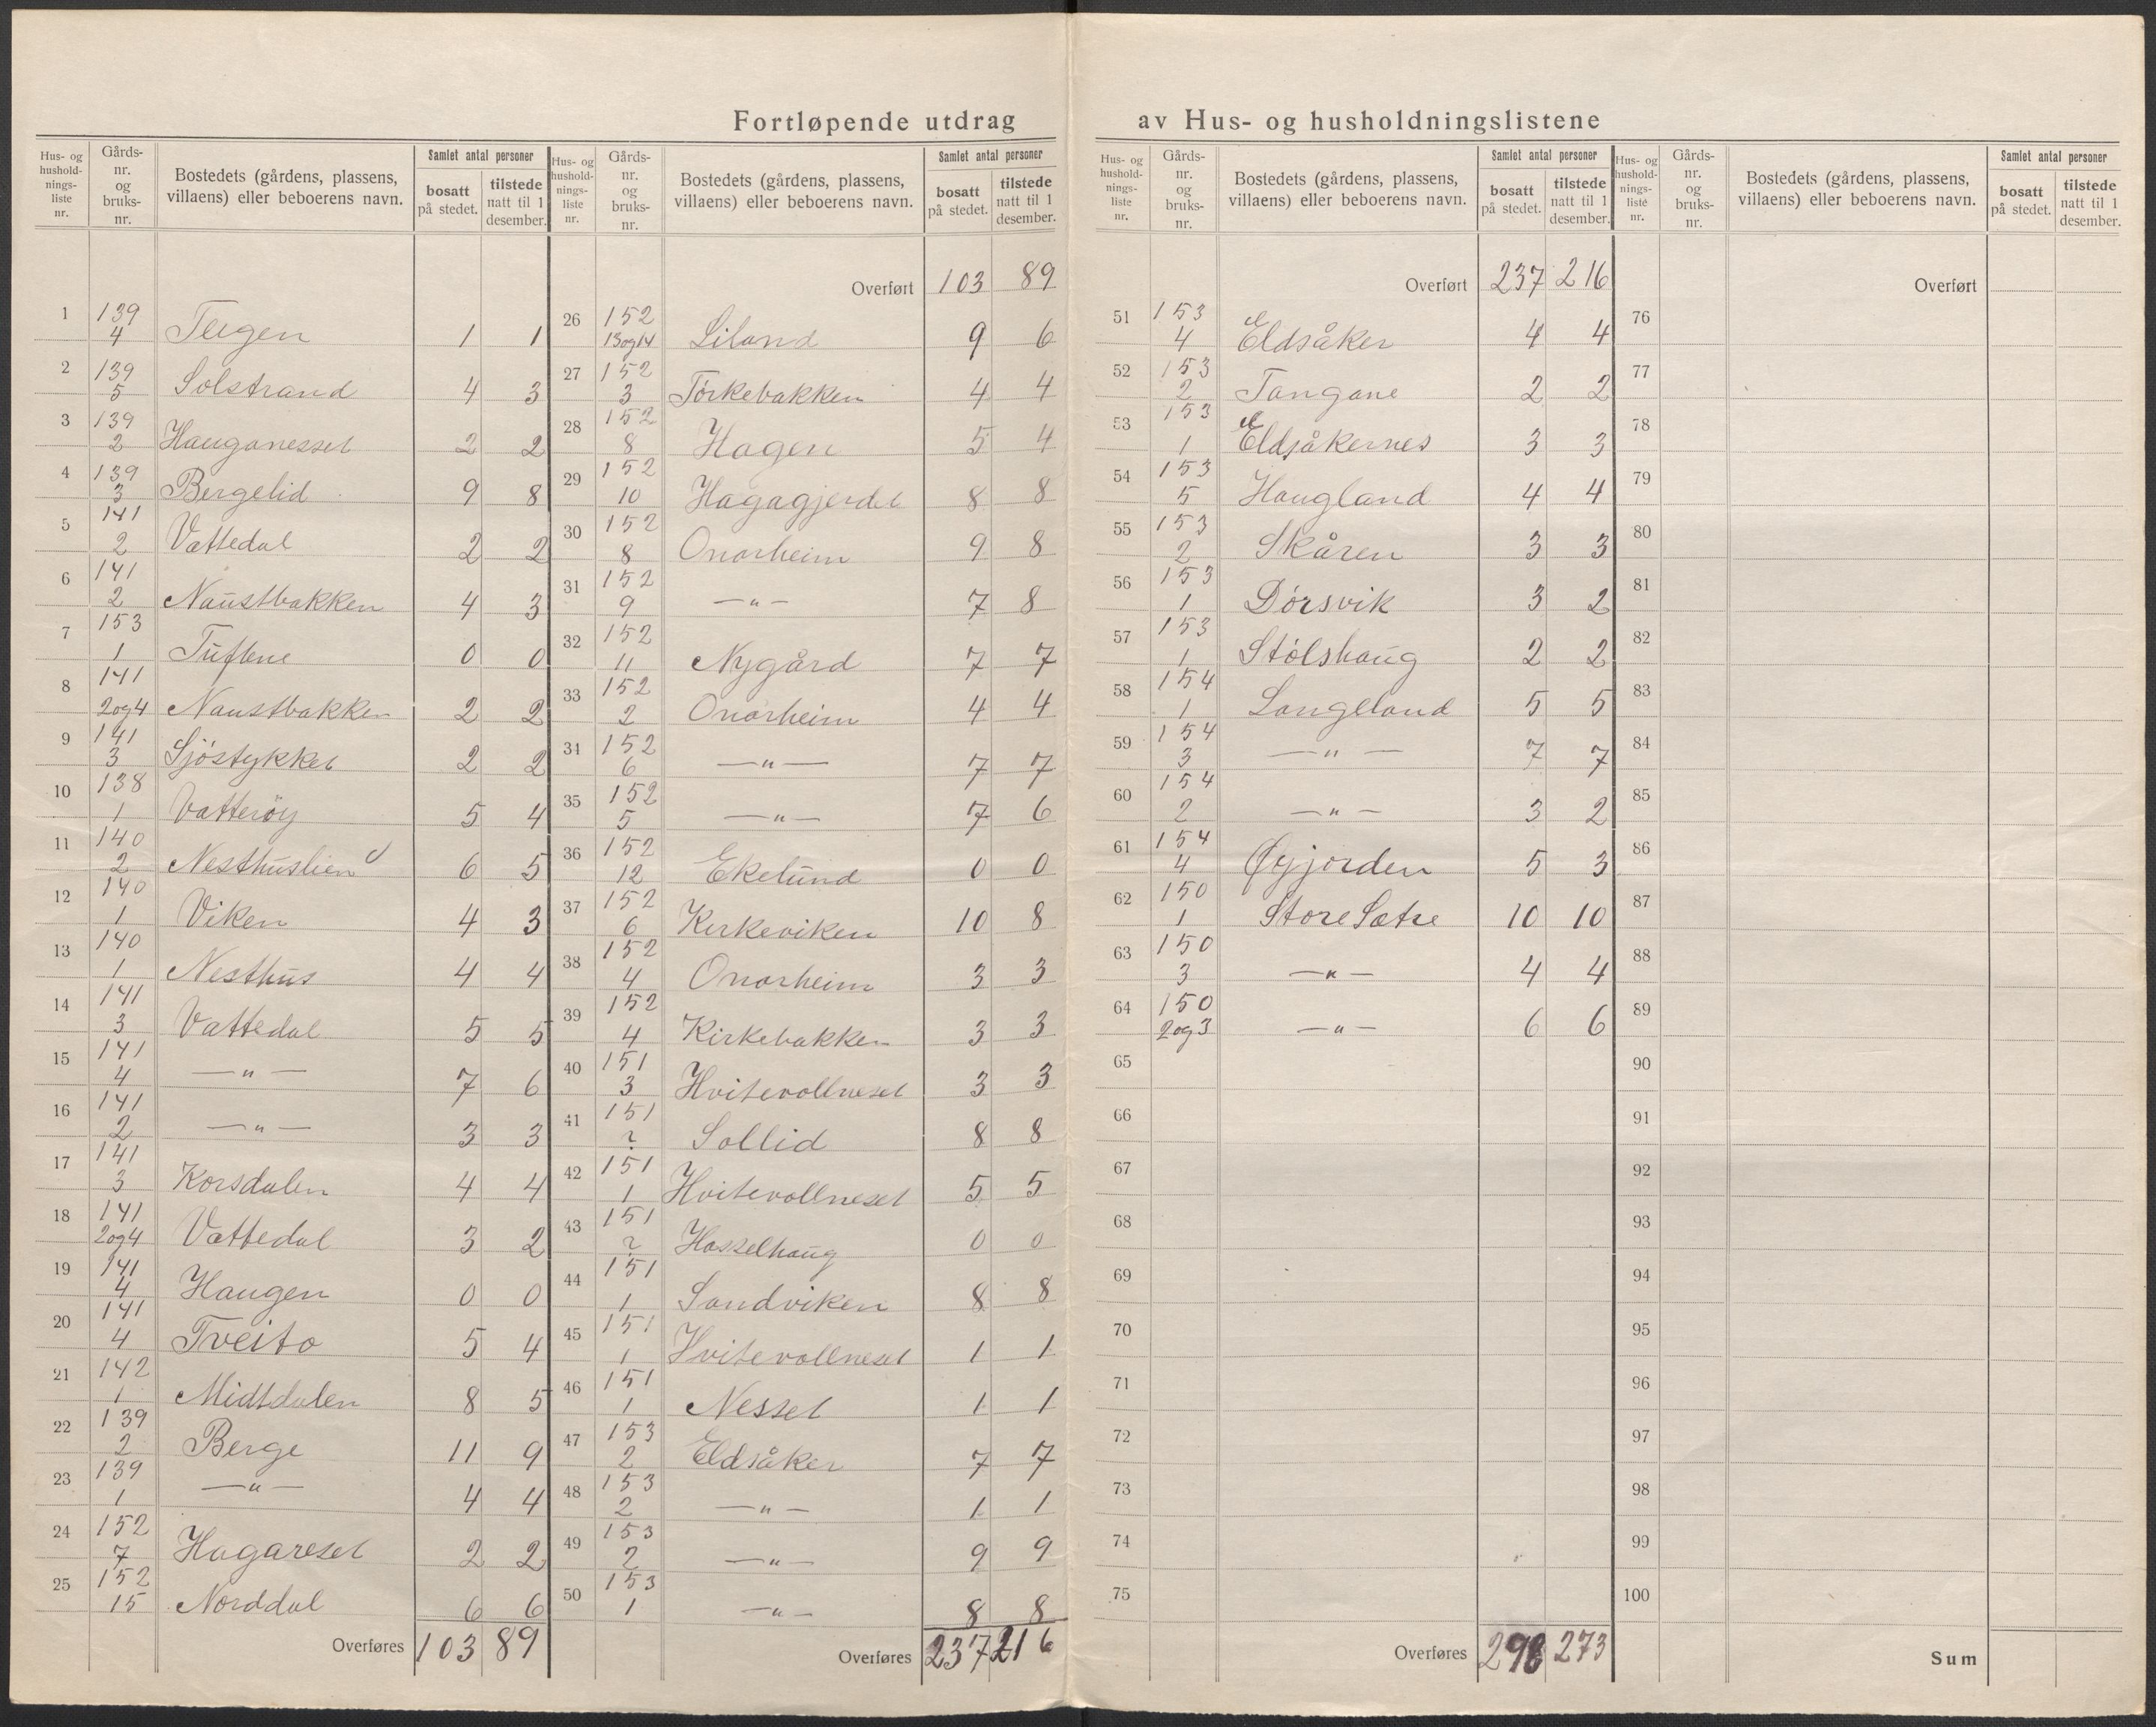 Fortløpende utdrag av Hus- og husholdningslistene
Hus- og husholdnings- liste nr. | Gårds- nr. og bruks- nr. | Bostedets (gårdens, plassens, villaens) eller beboerens navn. | Samlet antal personer bosatt på stedet. | tilstede natt til 1 desember.
1 139 4 Teigen 1 1
2 139 5 Solstrand 4 3
3 139 2 Hauganesset 2 2
4 139 3 Bergelid 9 8
5 141 2 Vattedal 2 2
6 141 2 Naustbakken 4 3
7 153 1 Tuftene 0 0
8 141 2og4 Naustbakken 2 2
9 141 3 Sjöstykket 2 2
10 138 1 Vatteröy 5 4
11 140 2 Nesthuslien 6 5
12 140 1 Viken 4 3
13 140 1 Nesthus 4 4
14 141 3 Vattedal 5 5
15 141 4 —"— 7 6
16 141 2 —"— 3 3
17 141 3 Korsdalen 4 4
18 141 2og4 Vattedal 3 2
19 141 4 Haugen 0 0
20 141 4 Tveito 5 4
21 142 1 Midtdalen 8 5
22 139 2 Berge 11 9
23 139 1 —"— 4 4
24 152 7 Hagareset 2 2
25 152 15 Norddal 6 6
Overføres 103 89
Hus- og husholdnings- liste nr. | Gårds- nr. og bruks- nr. | Bostedets (gårdens, plassens, villaens) eller beboerens navn. | Samlet antal personer bosatt på stedet. | tilstede natt til 1 desember.
Overført 103 89
26 152 13og14 Liland 9 6
27 152 3 Törkebakken 4 4
28 152 8 Hagen 5 4
29 152 10 Hagagjerdet 8 8
30 152 8 Onarheim 9 8
31 152 9 —"— 7 8
32 152 11 Nygård 7 7
33 152 2 Onarheim 4 4
34 152 6 —"— 7 7
35 152 5 —"— 7 6
36 152 12 Ekelund 0 0
37 152 6 Kirkeviken 10 8
38 152 4 Onarheim 3 3
39 152 4 Kirkebakken 3 3
40 151 3 Hvitevollneset 3 3
41 151 ? Sollid 8 8
42 151 1 Hvitevollneset 5 5
43 151 ? Hasselhaug 0 0
44 151 1 Sandviken 8 8
45 151 1 Hvitevollneset 1 1
46 151 1 Nesset 1 1
47 153 2 Eldsåker 7 7
48 153 2 —"— 1 1
49 153 2 —"— 9 9
50 153 1 —"— 8 8
Overføres 237 216
Hus- og husholdnings- liste nr. | Gårds- nr. og bruks- nr. | Bostedets (gårdens, plassens, villaens) eller beboerens navn. | Samlet antal personer bosatt på stedet. | tilstede natt til 1 desember.
Overført 237 216
51 153 4 Eldsåker 4 4
52 153 2 Tangane 2 2
53 153 1 Eldsåkernes 3 3
54 153 5 Haugland 4 4
55 153 2 Skåren 3 3
56 153 1 Dörsvik 3 2
57 153 1 Stölshaug 2 2
58 154 1 Langeland 5 5
59 154 3 —"— 7 7
60 154 2 —"— 3 2
61 154 4 Øyjorden 5 3
62 150 1 Store Sætre 10 10
63 150 3 —"— 4 4
64 150 2og3 —"— 6 6
65
66
67
68
69
70
71
72
73
74
75
Overføres 298 273
Hus- og husholdnings- liste nr. | Gårds- nr. og bruks- nr. | Bostedets (gårdens, plassens, villaens) eller beboerens navn. | Samlet antal personer bosatt på stedet. | tilstede natt til 1 desember.
Overført
76
77
78
79
80
81
82
83
84
85
86
87
88
89
90
91
92
93
94
95
96
97
98
99
100
Sum